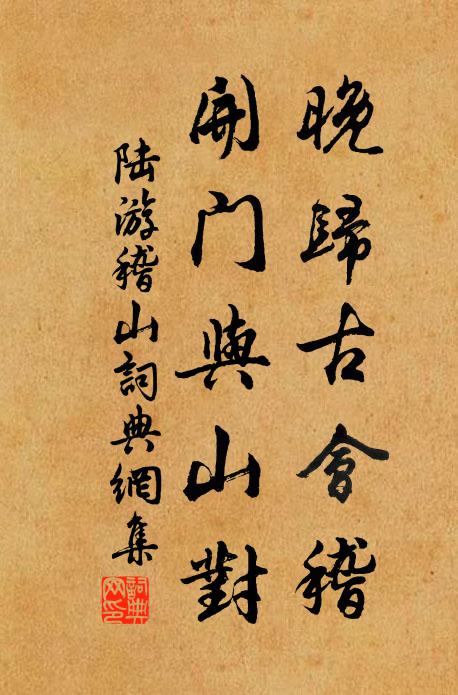 晚歸古會稽
開門與山對
陸游稽山詞典網集
詞典网印